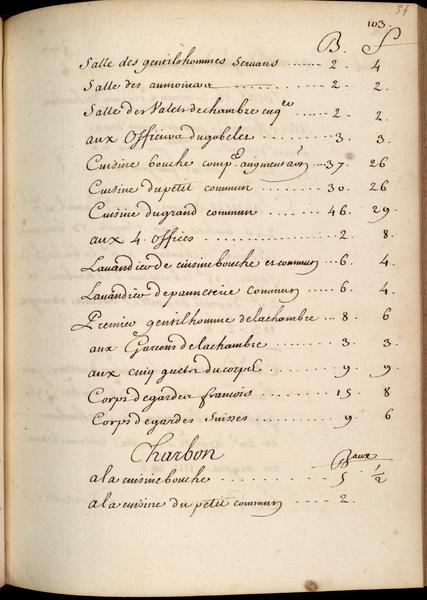 54
103.
B. f
Salle des gentilshommes servans ...... 2 . 4
Salle des aumoniers ...... 2 . 2.
Salle des Valets de chambre ...... 2 . 2.
aux Officiers du gobelet ...... 3 . 3.
Cuisine bouche comp.^é augmentaõn ...37. 26
Cuisine du petit commun ...... 30. 26
Cuisine du grand commun ...... 46. 29
aux 4. offices ...... 2 . 8.
Lavandiers de cuisine bouche et commun ... 6 . 4.
Lavandiers de panneterie Commun ... 6 . 4.
Premier gentilhomme de la chambre ... 8 . 6
aux Garcons de la chambre ...... 3 . 3.
aux cinq guets du corps ...... 9 . 9.
Corps de gardes francois ...... 15. 8
Corps de gardes Suisses ...... 9 . 6
Charbon
Baux
a la cuisine bouche ...... 5 1/2
a la cuisine du petit commun ...... 2.